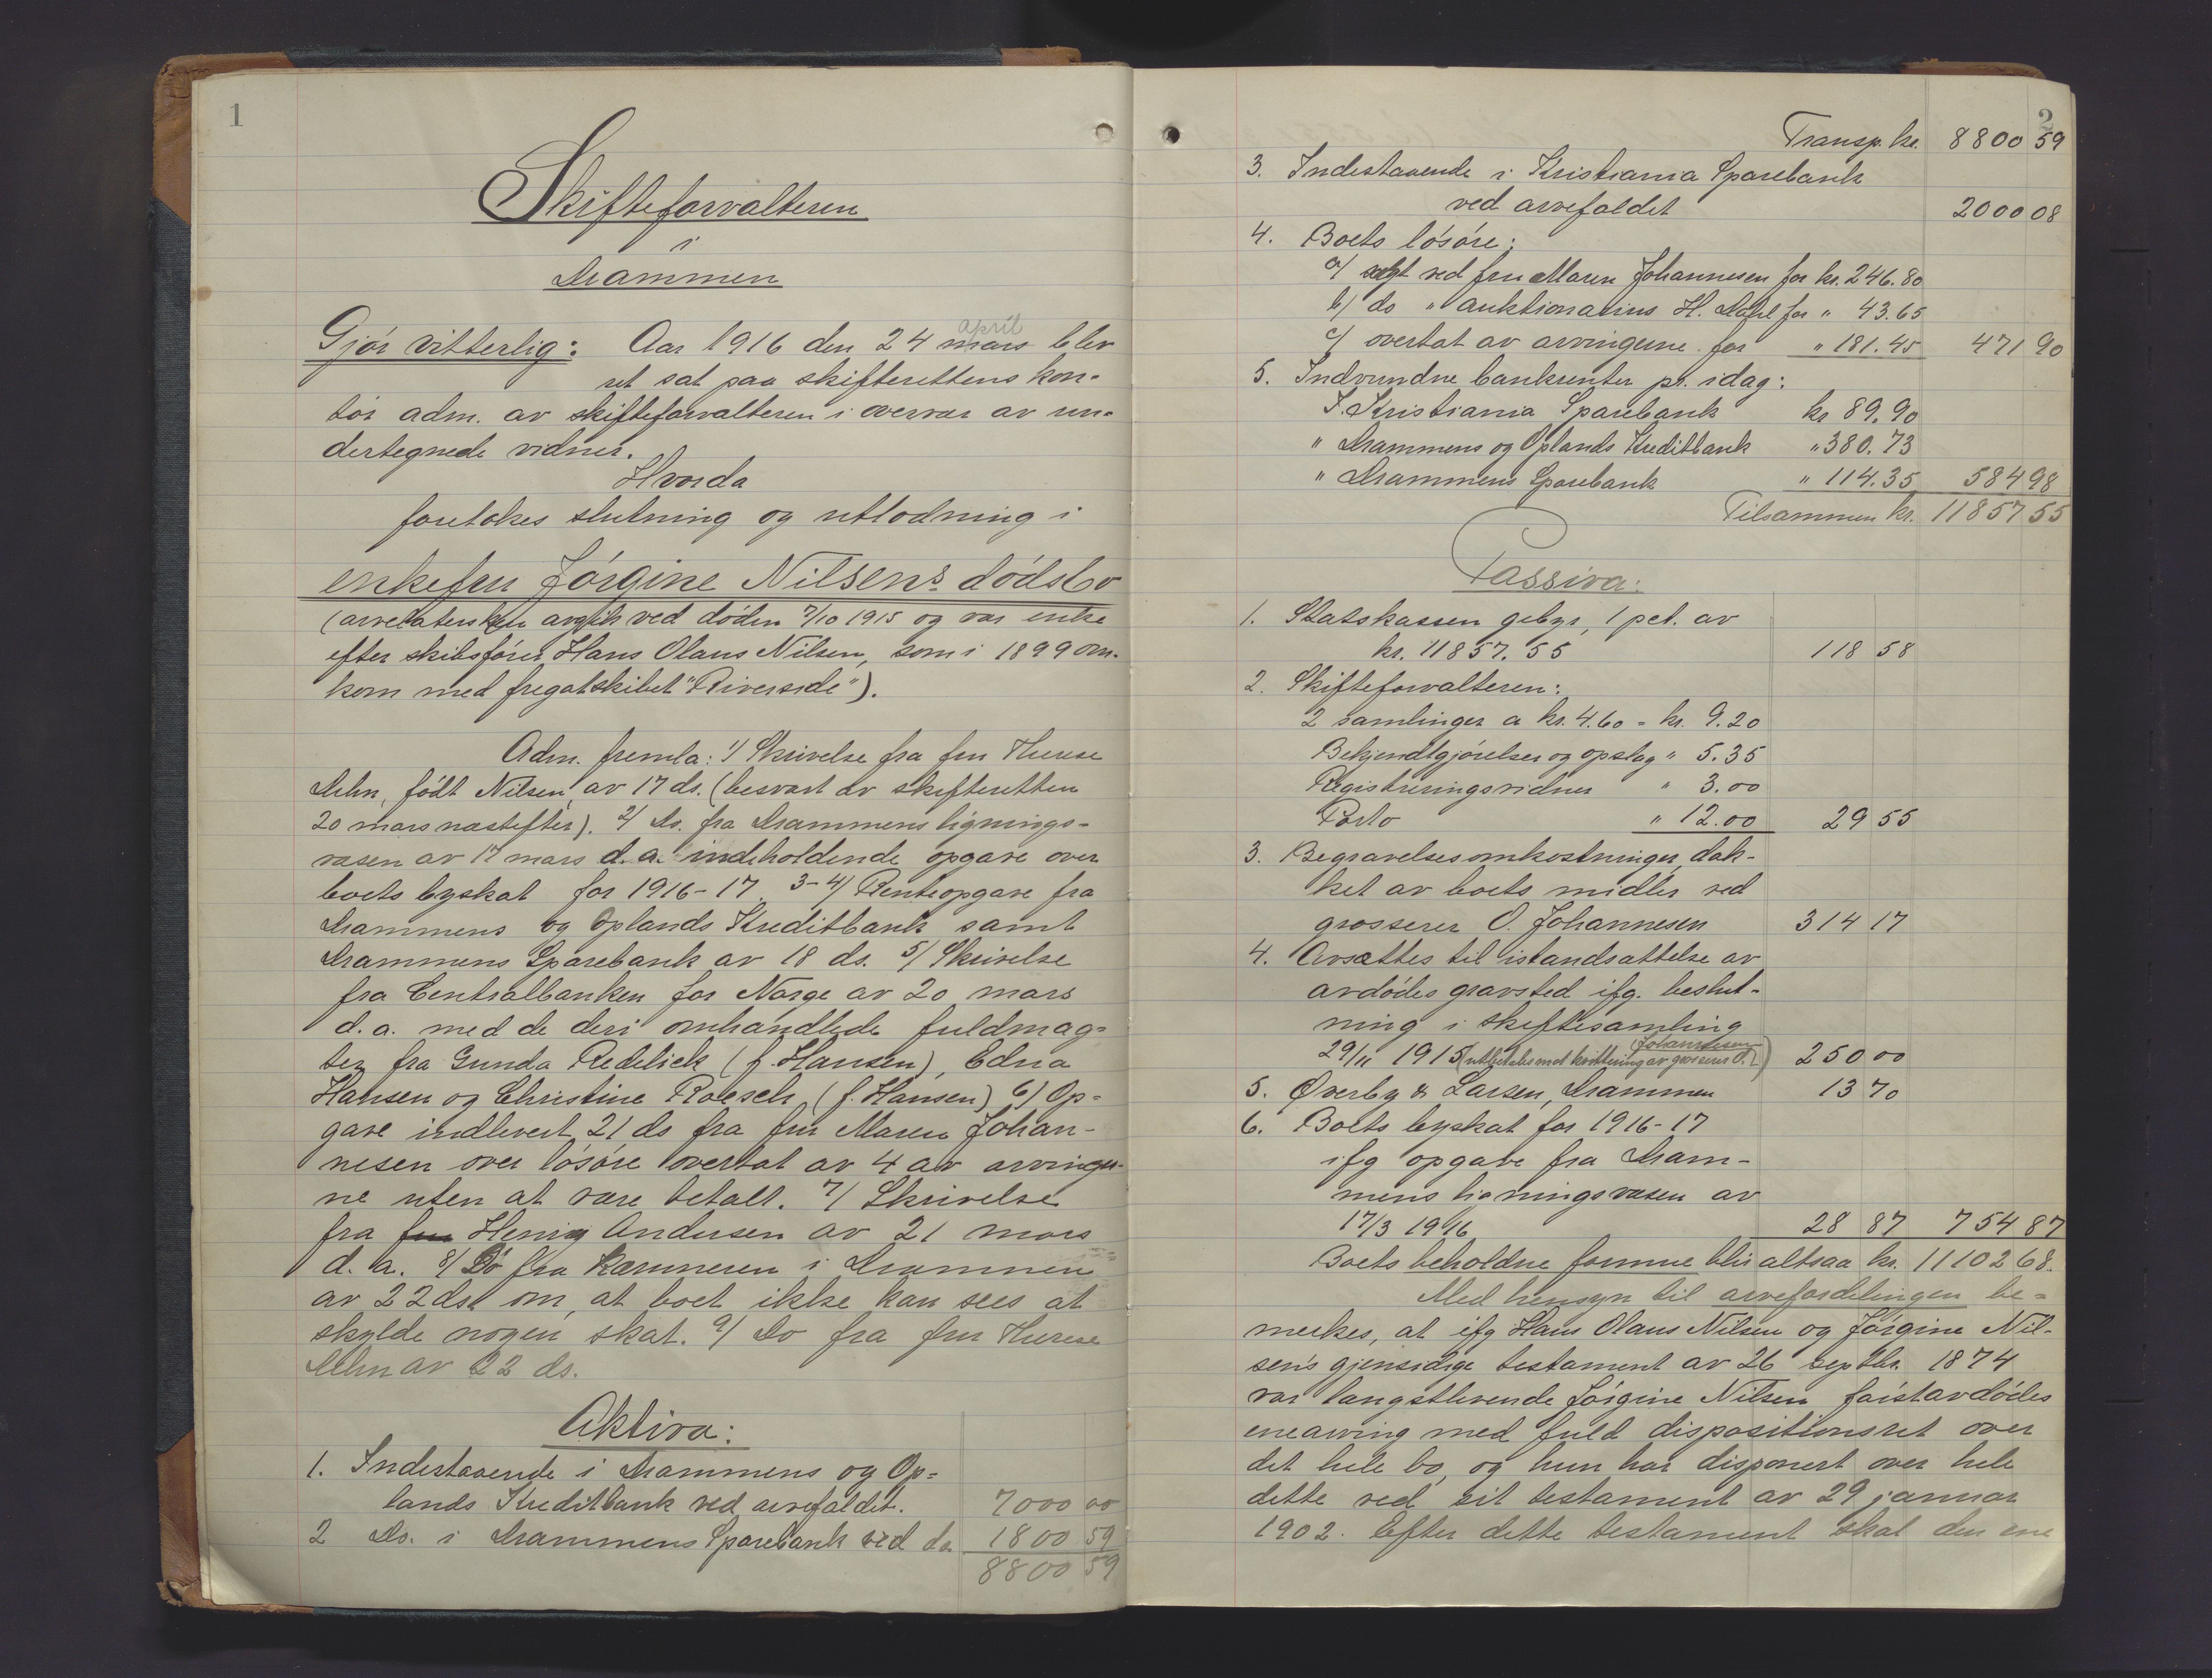 1
Skifteforvalteren
i
Drammen
Gjör vitterlig: Aar 1916 den 24 mars april blev
ret sat paa skifterettens kon-
tör adm. av skifteforvalteren i overvær av un-
dertegnede vidner.
Hvorda
foretokes slutning og utlodning i
enkefru Jörgine Nilsens dödsbo
(arvelatersken avgik ved döden 7/10 1915 og var enke
efter skibsförer Hans Olaus Nilsen, som i 1899 om-
kom med fregatskibet "Riverside").
Adm. fremla: 1/ Skrivelse fra fru Therese
født Nilsen, av 17 ds. (besvart av skifteretten
20 mars næstefter). 2/ Do. fra Drammens lignings-
væsen av 17 mars d.a. indeholdende opgave over
boets byskat for 1916-17. 3-4/ Renteopgave fra
Drammens og Oplands Kreditbank samt
Drammens Sparebank av 18 ds. 5/ Skrivelse
fra Centralbanken for Norge av 20 mars
d.a. med de deri omhandlede fuldmag-
ter fra Gunda Redelick (f. Hansen), Edna
Hansen og Christine Roesch (f. Hansen) 6) Op-
gave indlevert 21 ds fra fru Maren Johan-
nesen over lösöre overtat av 4 av arvinger-
ne uten at være betalt. 7/ Skrivelse
fra fru Henry Andersen av 21 mars
d.a. 8/ Do fra Kæmneren i Drammen
av 22 ds. om, at boet ikke kan sees at
skylde nogen skat. 9/ Do fra fru Therese
av 22 ds.
Aktiva:
1. Indestaaende i Drammens og Op-
lands Kreditbank ved arvefaldet. 7000 00
2 Do. i Drammens Sparebank ved do 1800 59
8800 59
2
Transp. kr. 8800 59
3. Indestaaende i Kristiania Sparebank
ved arvefaldet 2000 08
4. Boets lösöre:
a/ solgt ved fru Maren Johannesen for kr. 246.80
b) do " auktionarius H. for " 43.65
c/ overtat av arvingerne for " 181.45 471 90
5. Indvundne bankrenter pr. idag:
I Kristiania Sparebank kr 89.90
" Drammens og Oplands Kreditbank " 380.73
" Drammens Sparebank " 114.35 584 98
Tilsammen kr. 11857 55
Passiva:
1. Statskassen gebyr, 1 pct. av
kr. 11857.55 118 58
2. Skifteforvalteren:
2 samlinger a kr. 4.60 = kr. 9.20
Bekjendtgjörelser og opslag " 5.35
Registreringsvidner " 3.00
Porto " 12.00 29 55
3. Begravelsesomkostninger, dæk-
ket av boets midler ved
grosserer O. Johannesen 314 17
4. Avsættes til istandsættelse av
avdödes gravsted ifg. beslut-
ning i skiftesamling
29/11 1915 (utbetales mot kvittering av grosserer O. Johannesen) 250 00
5. Øverby & Larsen, Drammen 13 70
6. Boets byskat for 1916-17
ifg opgave fra Dram-
mens ligningsvæsen av
17/3 1916 28 87 754 87
Boets beholdne formue blir altsaa kr. 11102 68.
Med hensyn til arvefordelingen be-
merkes, at ifg Hans Olaus Nilsen og Jörgine Nil-
sen's gjensidige testament av 26 septbr. 1874
var længstlevende Jörgine Nilsen förstavdödes
enearving med fuld dispositionsret over
det hele bo, og hun har disponert over hele
dette ved sit testament av 29 januar
1902. Efter dette testament skal den ene